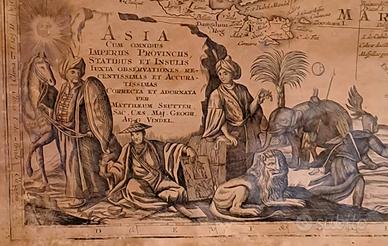 ASIA
CUM OMNIBUS
IMPERIIS PROVINCIIS,
STATIBUS ET INSULIS
IUXTA OBSERVATIONES RE-
CENTISSIMAS ET ACCURA-
TISSIMAS
CORRECTA ET ADORNATA
PER
MATTHÆUM SEUTTER,
SAC. CÆS. MAJ. GEOGR.
AUG. VINDEL.
MA
subito